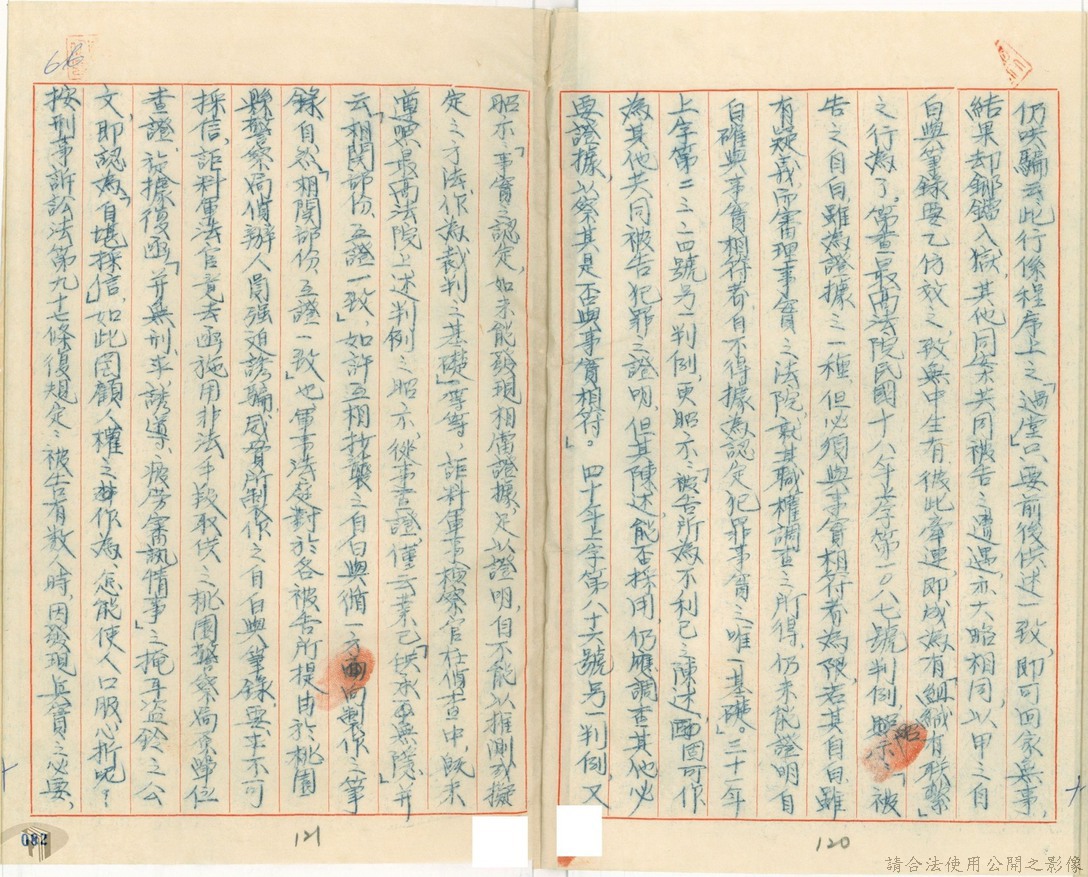 仍哄騙云云，此行係程序上之「過堂」只要前後供述一致，即可回家無事，
結果却鋃鐺入獄，其他同案共同被告之遭遇，亦大略相同，以甲之自
白與筆錄要乙仿效之，致無中生有彼此牽連，即成為有「組織有聯繫」
之行為了。第查最高法院民國十八年上字第一〇八七號判例昭示：「被
告之自白雖為證據之一種，但必須與事實相符者為限，若其自白雖
有疑義，而審理事實之法院，就其職權調查之所得，仍未能證明自
白確與事實相符者，自不得據為認定犯罪事實之唯一基礎。」三十一年
上字第二三四號号判例，更昭示：「被告所為不利己之陳述，固可作
為其他共同被告犯罪之證明，但其陳述，能否採用，仍應調查其他必
要證據，以察其是否與事實相符。」四十年上字第八十六號号判例，又
昭示：「事實之認定，如未能發現相當證據足以證明，自不能以推測或擬
定之方法，作為裁判之基礎」等等，詎料軍事檢察官在偵查中，既未
遵照最高法院上述判例之昭示，從事查證，僅云業已「供承不無隱」，并
云「相關部份，互證一致」，如許互相抄襲之自白與循一方向製作之筆
錄，自然「相關部份，互證一致」也，軍事法庭對於各被告所提由於桃園
縣警察局偵辦人員强迫誘騙威脅所製作之自白與筆錄，要求不可
採信，詎料軍法官竟去函施用非法手段取供之桃園警察局原單位
查證，旋據復函，「并無刑求、誘導、疲勞審訊情事」之掩耳盜鈴之公
文，即認為「自堪採信」，如此罔顧人權之作為，怎能使人口服心折呢？
按刑事訴訟法第九十七條復規定：被告有數人時，因發現真實之必要，
120
121
66
082
請合法使用公開之影像